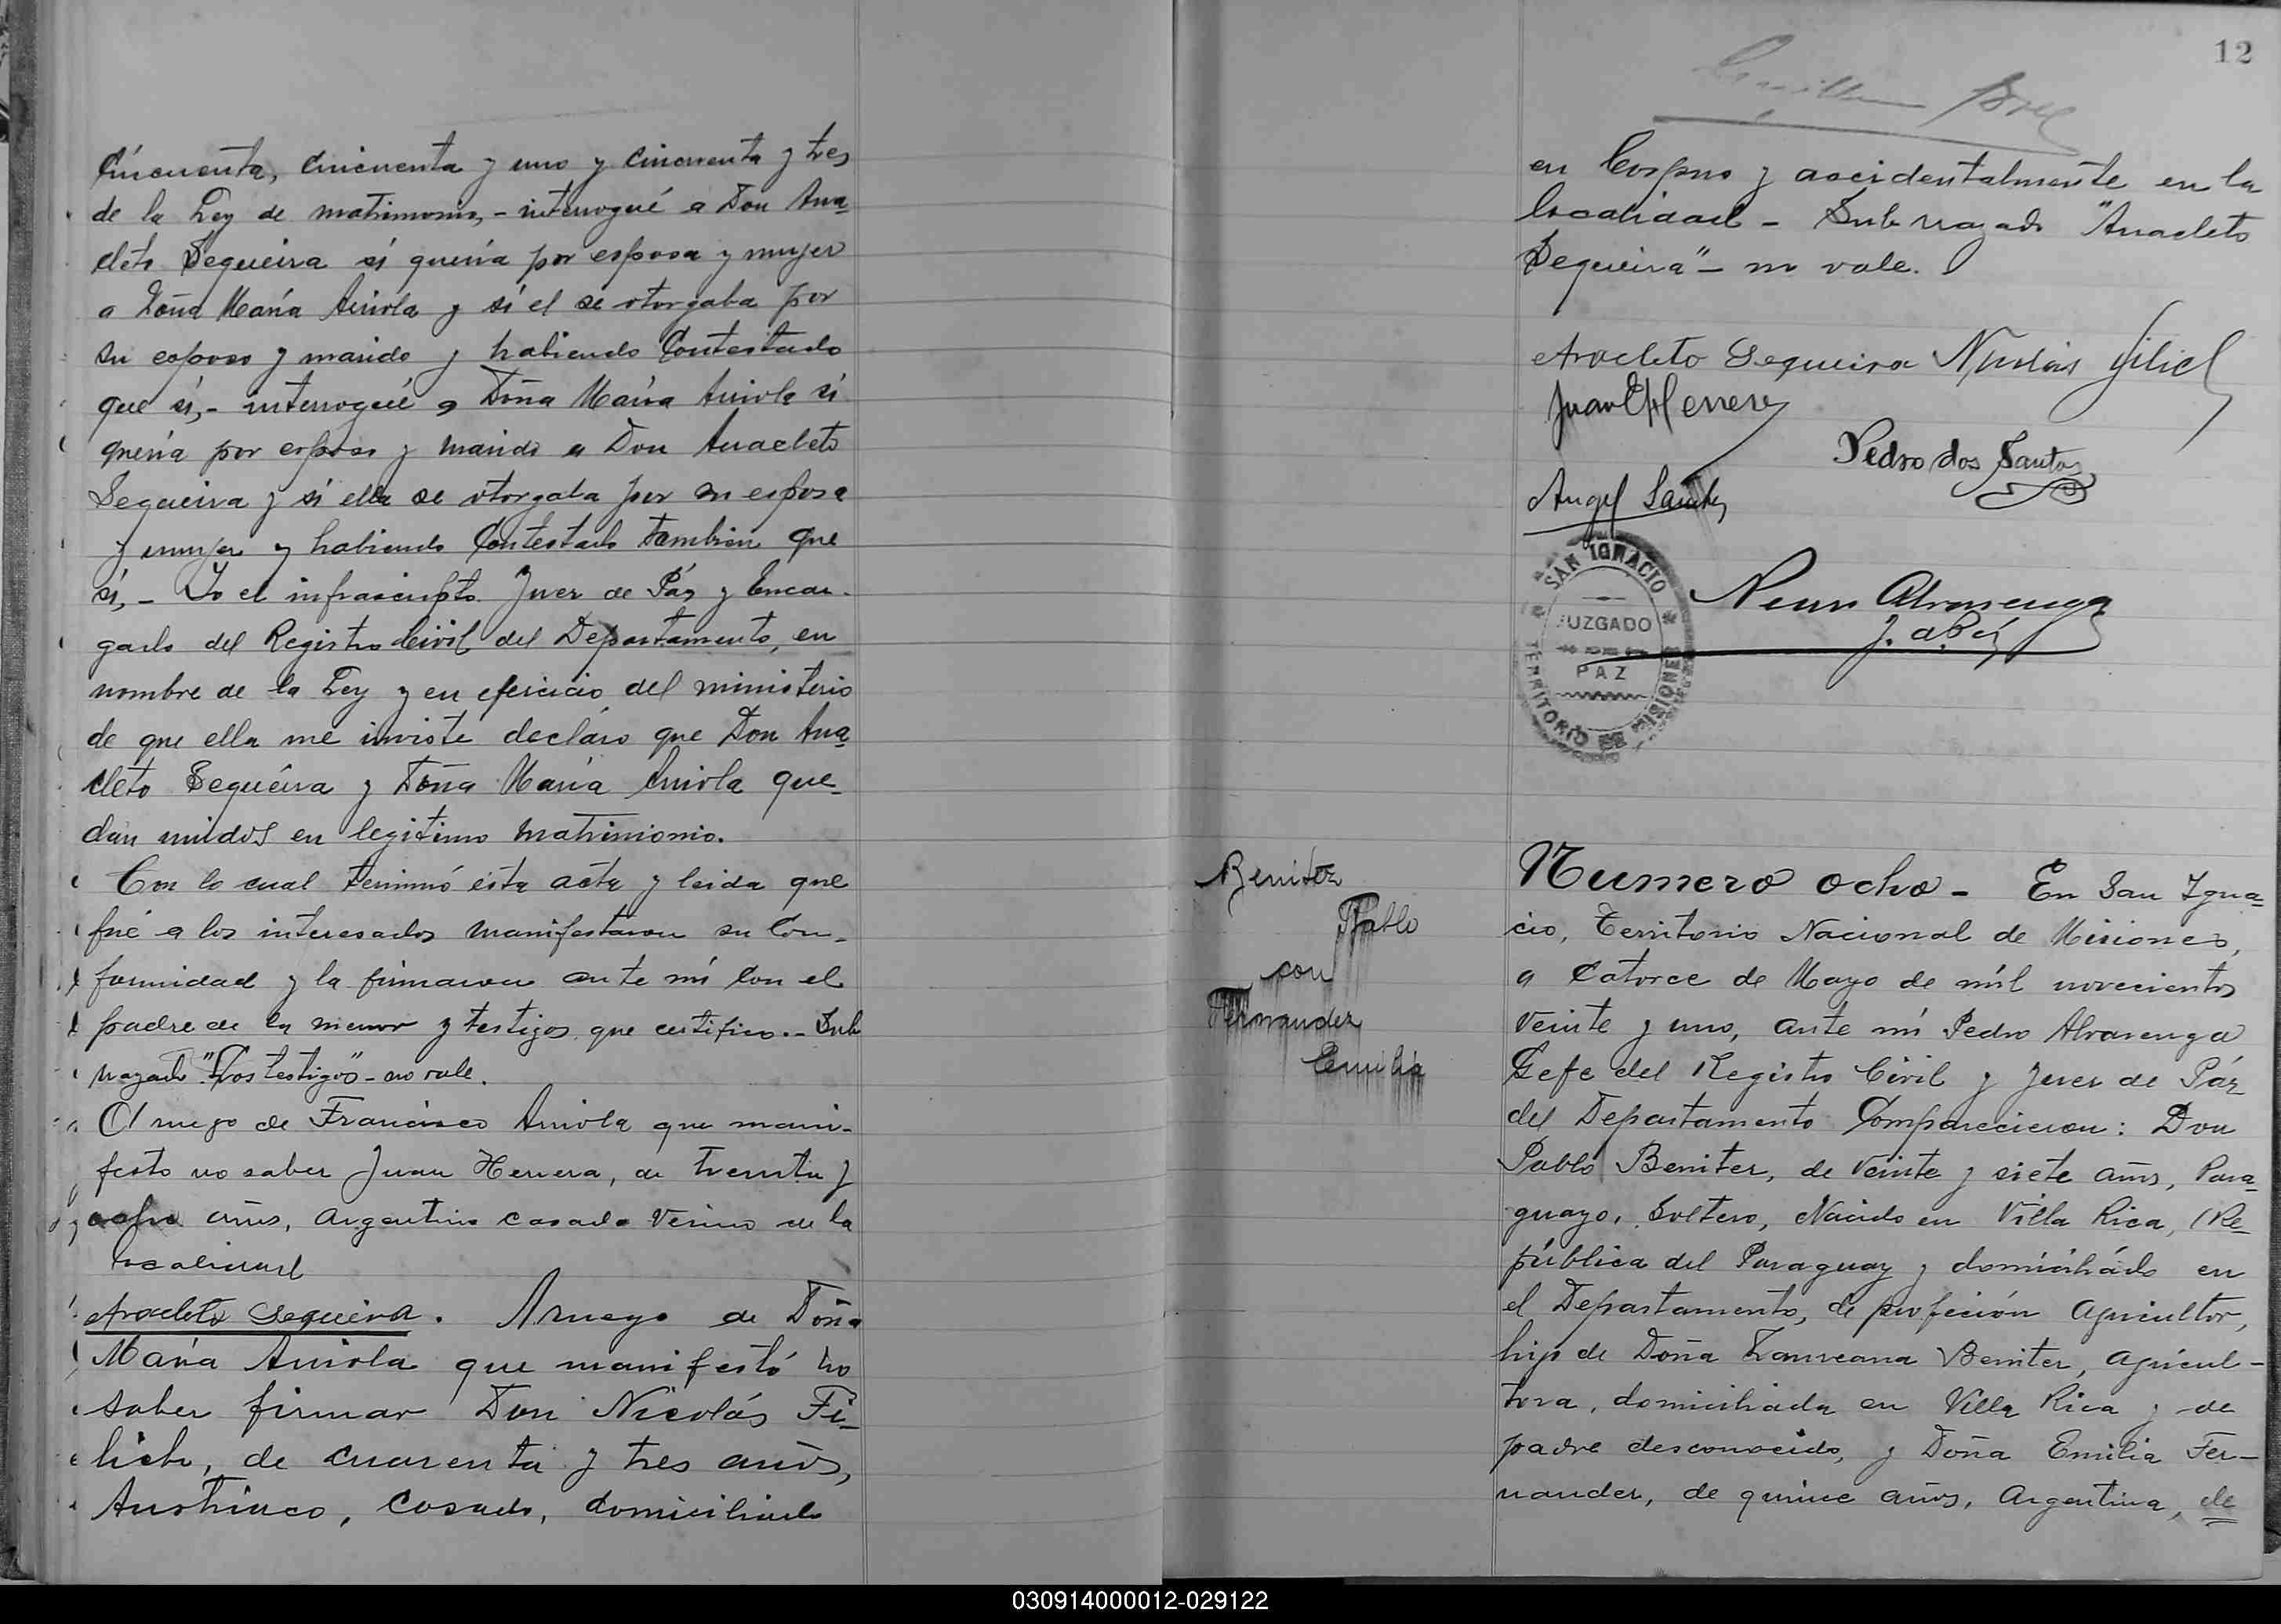 Cincuenta, Cincuenta y uno y cincuenta y tres
de la Ley de matrimonio, - interrogué a Don Ana
cleto Sequeira si quería por esposa y mujer
a Doña María Arriola y si el se otorgaba por
su esposo y marido y habiendo Contestado
que si, - interrogué a Doña María Arriola si
quería por esposo y marido a Don Anacleto
Sequeira y si ella se otorgaba por su esposa
y mujer y habiendo Contestado tambien que
si, - Yo el infrascripto Juez de Páz y Encar-
gado del Registro Civil del Departamento, en
nombre de la Ley y en efercicio del ministerio
de que ella me inviste decláro que Don Ana
cleto Sequeira y Doña María Arriola que-
dan unidos en legitimo matrimonio.
Con lo cual terminó esta acta y leida que
fué a los interesados manifestaron su Con-
formidad y la firmaron ante mí Con el
padre de la menor y testigos que certifico.- Sub
razado "Los testigos" - no vale.
A ruego de Francisco Arriola que mani-
festo no saber Juan Herrera, de treinta y
ocho años, argentino casado Vecino de la
localidad
Anacleto Sequeira. A ruego de Doña
María Arriola que manifestó no
saber firmar Don Nicolás Fi-
lich, de cuarenta y tres años,
Austriaco, Casado, domiciliado
12
en Corpus y accidentalmente en la
localidad - Sub razado "Anacleto
Sequeira" - no vale.
Anacleto Sequeira Nicolás Filich
Juan Herrera
Pedro dos Santos
Angel
SAN IGNACIO
JUZGADO
DE
PAZ
TERRITORIO DE MISIONES
Alvarenga
J. de Páz
Benitez
Pablo
con
Fernandez
Emilia
Numero ocho - En San Igna-
cio, Territorio Nacional de Misiones,
a Catorce de Mayo de mil novecientos
veinte y uno, ante mí Pedro Alvarenga
Gefe del Registro Civil y Juez de Páz
del Departamento Comparecieron: Don
Pablo Benitez, de veinte y siete años, Para-
guayo, Soltero, Nacido en Villa Rica, (Re-
pública del Paraguay y domiciliádo en
el Departamento, de profeción Agricultor,
hijo de Doña Laureana Benitez, Agricul-
tora, domiciliada en Villa Rica y de
padre desconocido, y Doña Emilia Fer-
nandez, de quince años, Argentina, de
030914000012-029122